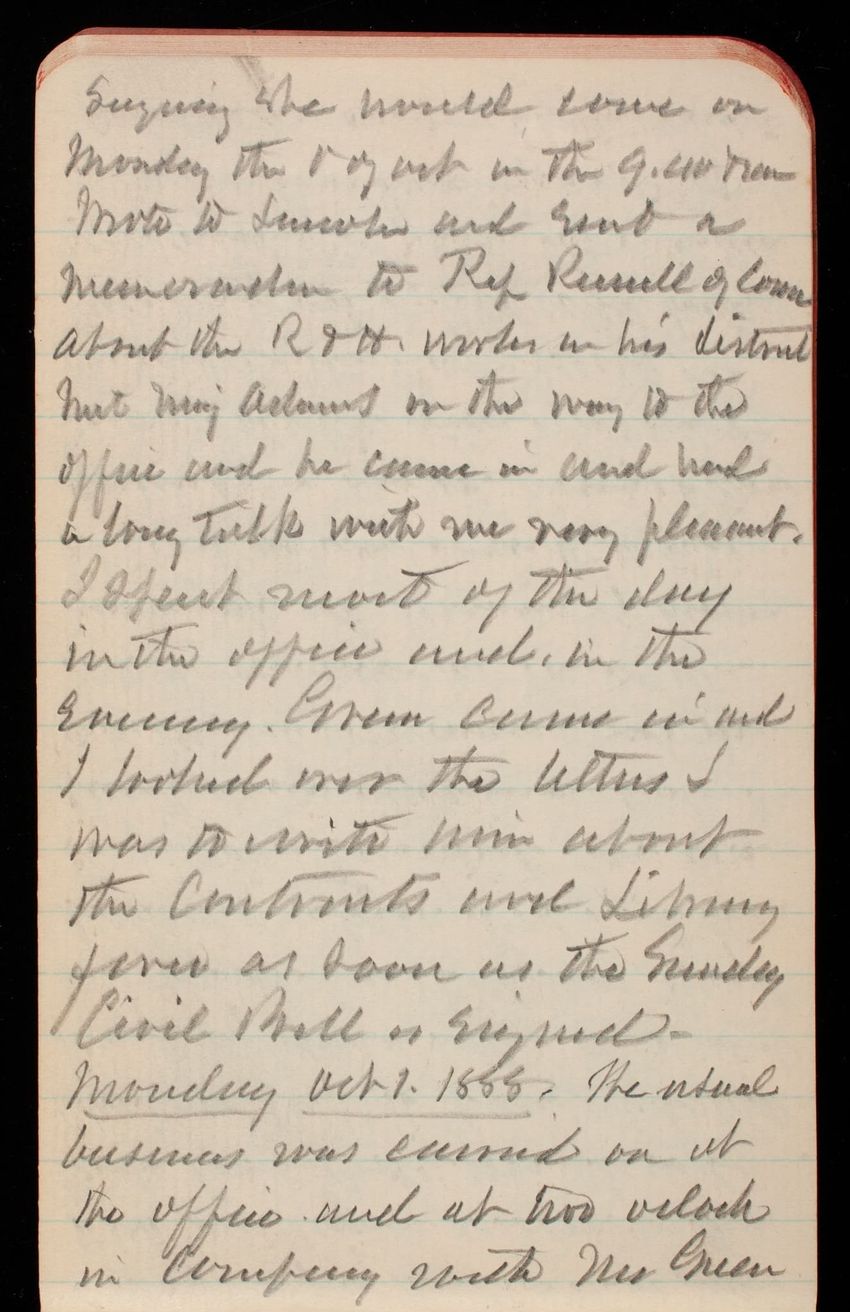 Saying she would come on
Monday the 8 of Oct in the 9.40 train
Wrote to Lincoln and sent a
memorandum to Rep Russell of Conn
about the R & H. works in his district
Met Maj Adams on the way to the
office and he came in and had
a long talk with me very pleasant.
I spent most of the day
in the office and, in the
evening. Green came in and
I looked over the letters I
was to write him about
the Contracts and Library
force as soon as the Sunday
Civil Bill is signed -
Monday Oct 1. 1888. The usual
business was carried on at
the office and at two oclock
in company with Mr Green